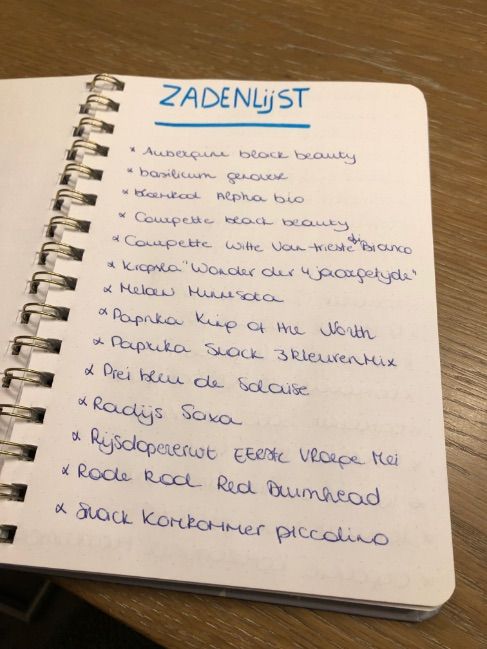 ZADENLijST
* Aubergine black beauty
* basilicum genovese
* bloemkool Alpha bio
* Courgette black beauty
* Courgette witte van trieste di Bianco
* Kropsla "Wonder der 4 jaargetijde"
* Meloen Minnesota
* Paprika King of the North
* Paprika Snack 3 kleuren Mix
* Prei bleu de Solaise
* Radijs Saxa
* Rijsdopererwt EERSTE VROEGE Mei
* Rode Kool Red Drumhead
* Snack Komkommer piccolino